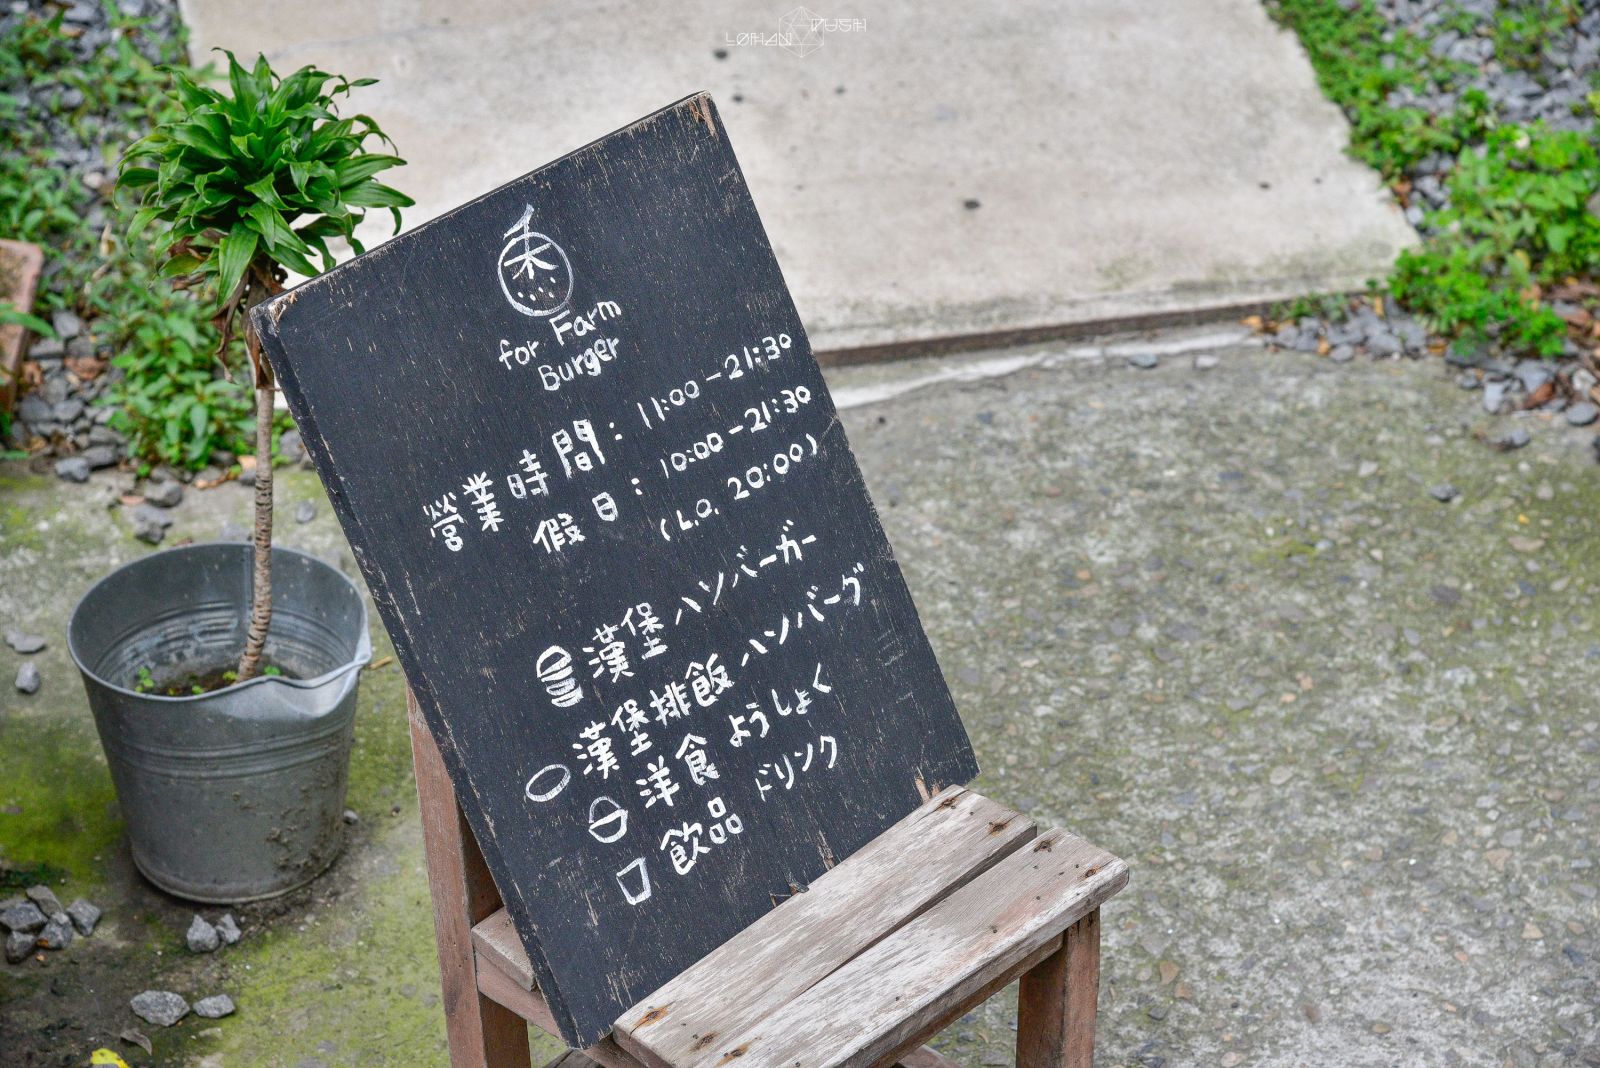 LOHAN PUGH
禾
for Farm
Burger
營業時間: 11:00-21:30
假日: 10:00-21:30
(L.O. 20:00)
漢堡 ハンバーガー
漢堡排飯 ハンバーグ
洋食 ようしょく
飲品 ドリンク